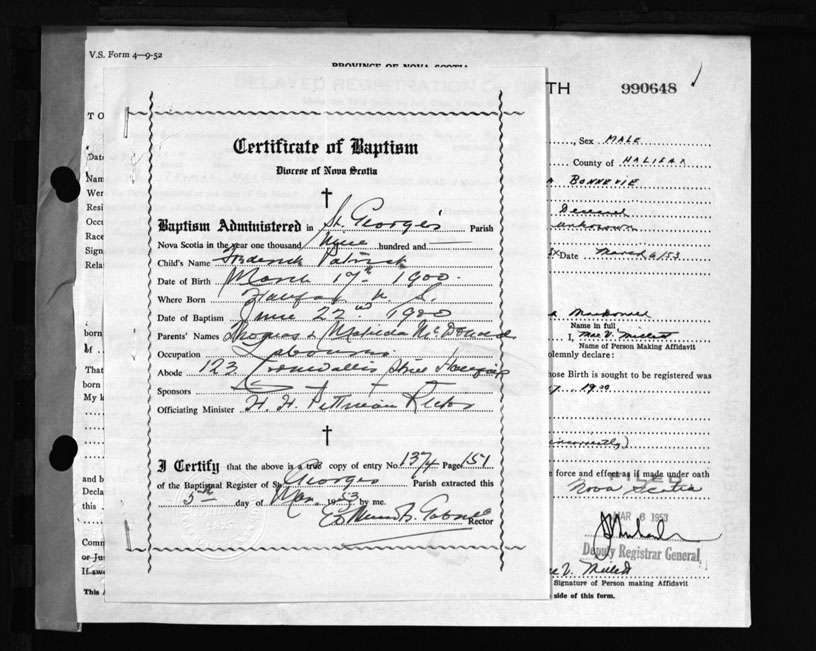 V.S. Form 4—9-52
PROVINCE OF NOVA SCOTIA
DELAYED REGISTRATION OF BIRTH
990648
TO
Sex MALE
Date
County of HALIFAX
Nam
BONNEVIE
Wer
Resi
Deceased
Occu
Unknown
Race
Sign
Date March 6/53
Rela
Certificate of Baptism
Diocese of Nova Scotia
Baptism Administered in St. George's Parish
Nova Scotia in the year one thousand Nine hundred and —
Child's Name Frederick Patrick
Date of Birth March 17th 1900.
Where Born Halifax N. S.
Date of Baptism June 22nd 1900
Parents' Names Thomas & Matilda McDonald
Occupation Labourer
Abode 123 Cornwallis Street Halifax
Sponsors
Officiating Minister H. H. Pittman Rector
I Certify that the above is a true copy of entry No. 1374 Page 151
of the Baptismal Register of St. Georges Parish extracted this
5th day of Mar. 1953 by me.
Rector
Name in full
born
I, Mae V. Millett
Name of Person Making Affidavit
if
olemnly declare:
That
ose Birth is sought to be registered was
born
1900
My k
incorrectly)
and b
e force and effect as if made under oath
Decla
FILED
this
Nova Scotia
MAR 6 1953
Comm
Deputy Registrar General
or Jus
If awe
V. Millett
Signature of Person making Affidavit
This
side of this form.